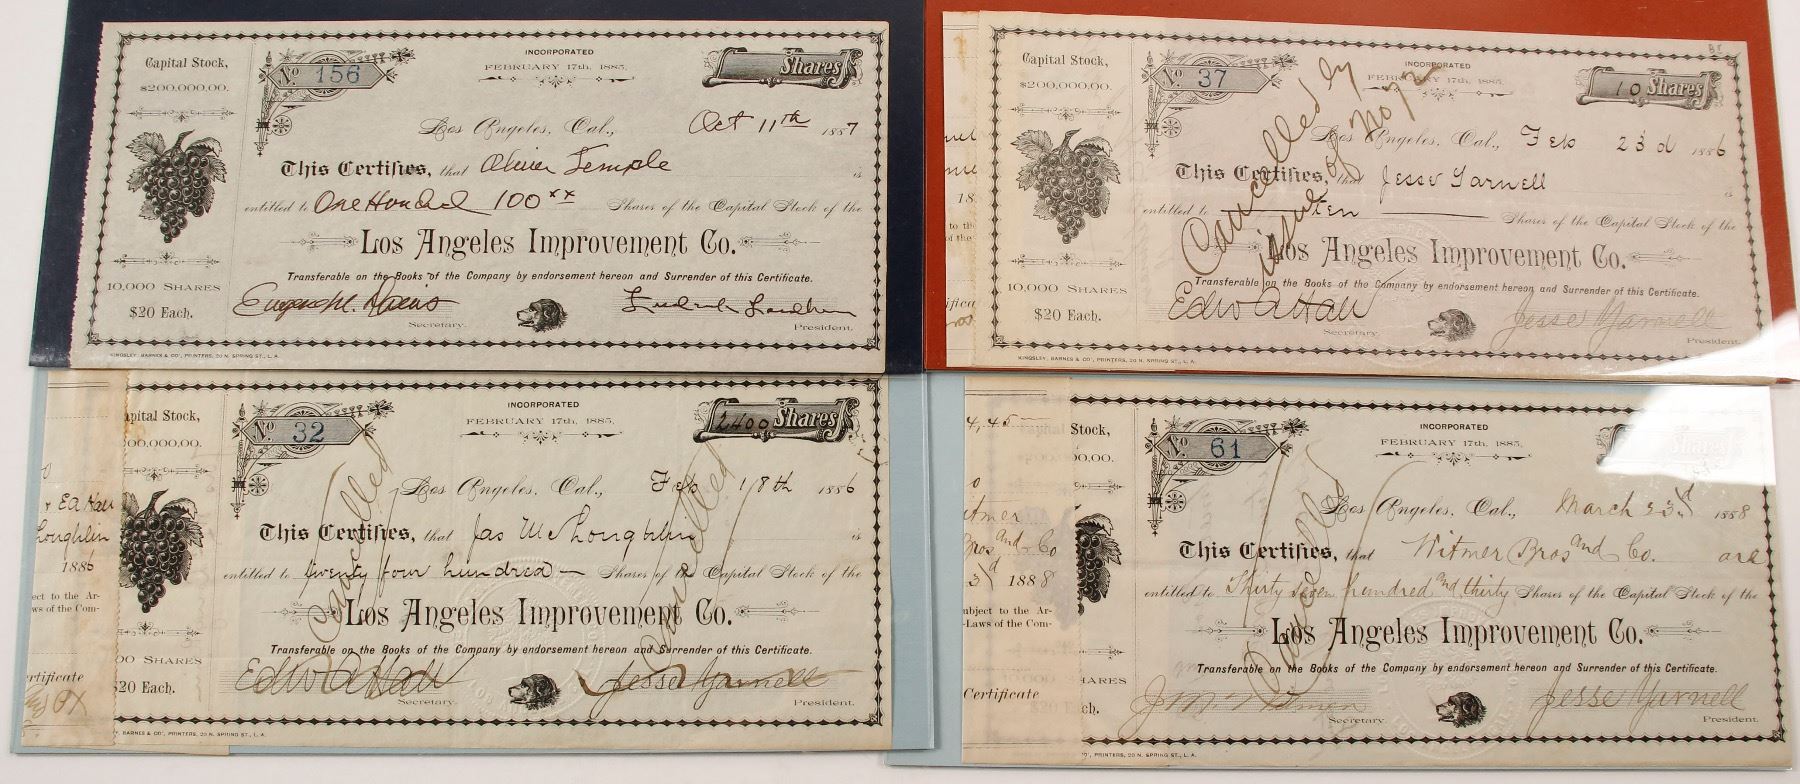 Capital Stock,
$200,000.00.
10,000 SHARES
$20 Each.
No 156
INCORPORATED
FEBRUARY 17th, 1885.
Shares
Los Angeles, Cal., Oct 11th 1887
This Certifies, that Oliver Temple is
entitled to One Hundred 100 xx Shares of the Capital Stock of the
Los Angeles Improvement Co.
Transferable on the Books of the Company by endorsement hereon and Surrender of this Certificate.
Secretary.
President.
KINGSLEY, BARNES & CO', PRINTERS, 20 N. SPRING ST., L. A.
Capital Stock,
$200,000.00.
10,000 SHARES
$20 Each.
No 37
INCORPORATED
FEBRUARY 17th, 1885.
10 Shares
Cancelled by
issue of No 72
Los Angeles, Cal., Feb 23d 1886
This Certifies, that Jesse Yarnell is
entitled to ten Shares of the Capital Stock of the
Los Angeles Improvement Co.
Transferable on the Books of the Company by endorsement hereon and Surrender of this Certificate.
Edw A Hall Secretary.
Jesse Yarnell President.
KINGSLEY, BARNES & CO', PRINTERS, 20 N. SPRING ST., L. A.
& EA Hall
Loughlin
1886
ect to the Ar-
ws of the Com-
rtificate
apital Stock,
200,000.00.
00 SHARES
$20 Each.
No 32
INCORPORATED
FEBRUARY 17th, 1885.
2400 Shares
Cancelled
Cancelled
Los Angeles, Cal., Feb 18th 1886
This Certifies, that Jas McLoughlin is
entitled to twenty four hundred Shares of the Capital Stock of the
Los Angeles Improvement Co.
Transferable on the Books of the Company by endorsement hereon and Surrender of this Certificate.
Edw A Hall Secretary.
Jesse Yarnell President.
Y, BARNES & CO', PRINTERS, 20 N. SPRING ST., L. A.
4,45
itmer
Bros and Co
3d 1888
ubject to the Ar-
-Laws of the Com-
Certificate
Capital Stock,
00.00.
10,000 SHARES
$20 Each.
No 61
INCORPORATED
FEBRUARY 17th, 1885.
Shares
Cancelled
Los Angeles, Cal., March 23d 1888
This Certifies, that Witmer Bros and Co. are
entitled to Thirty seven hundred and thirty Shares of the Capital Stock of the
Los Angeles Improvement Co.
Transferable on the Books of the Company by endorsement hereon and Surrender of this Certificate.
J M Witmer Secretary.
Jesse Yarnell President.
O', PRINTERS, 20 N. SPRING ST., L. A.